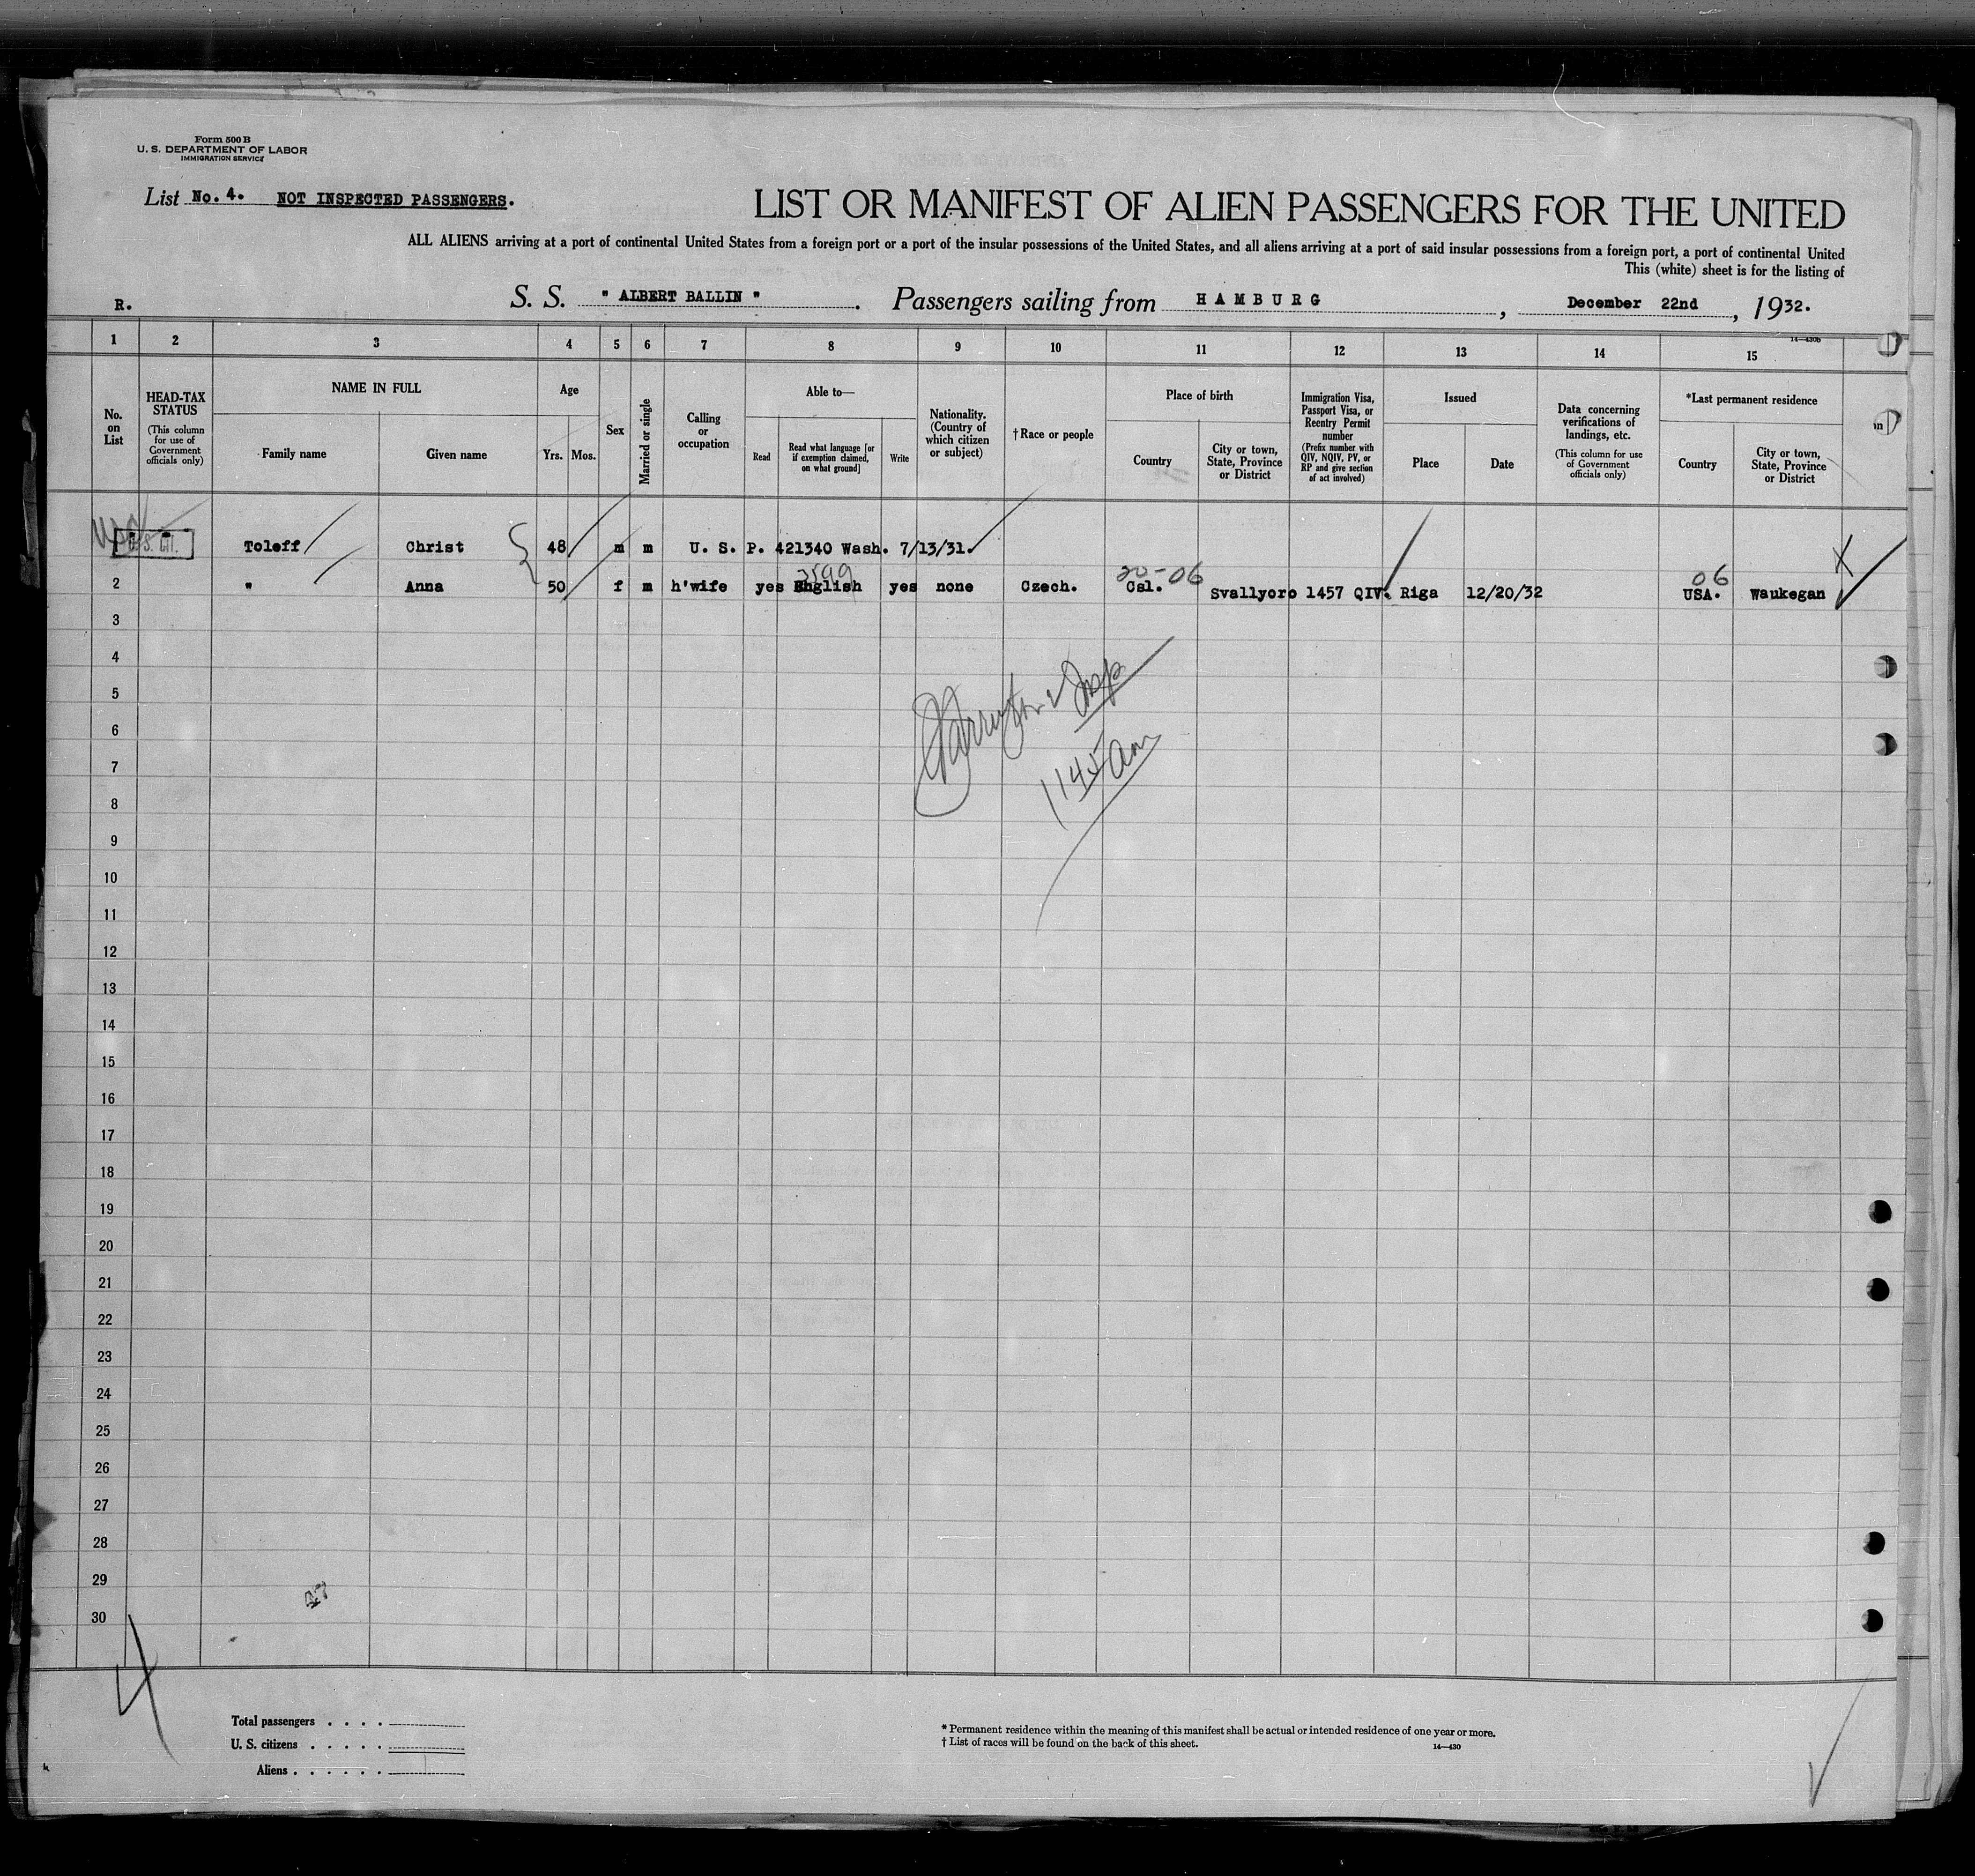 Form 500 B
U. S. DEPARTMENT OF LABOR
IMMIGRATION SERVICE
List No. 4. NOT INSPECTED PASSENGERS.
LIST OR MANIFEST OF ALIEN PASSENGERS FOR THE UNITED
ALL ALIENS arriving at a port of continental United States from a foreign port or a port of the insular possessions of the United States, and all aliens arriving at a port of said insular possessions from a foreign port, a port of continental United
This (white) sheet is for the listing of
R. S. S. " ALBERT BALLIN ". Passengers sailing from HAMBURG, December 22nd, 1932.
14—430b
1 2 3 4 5 6 7 8 9 10 11 12 13 14 15
No. on List
HEAD-TAX STATUS (This column for use of Government officials only)
NAME IN FULL
Family name
Given name
Age
Yrs. Mos.
Sex
Married or single
Calling or occupation
Able to—
Read
Read what language [or if exemption claimed, on what ground]
Write
Nationality. (Country of which citizen or subject)
† Race or people
Place of birth
Country
City or town, State, Province or District
Immigration Visa, Passport Visa, or Reentry Permit number (Prefix number with QIV, NQIV, PV, or RP and give section of act involved)
Issued
Place
Date
Data concerning verifications of landings, etc. (This column for use of Government officials only)
*Last permanent residence
Country
City or town, State, Province or District
in
U.S. CIT. Toleff Christ 48 m m U. S. P. 421340 Wash. 7/13/31. X
3599 20-06 06
2 " Anna 50 f m h'wife yes English yes none Czech. Csl. Svallyoro 1457 QIV. Riga 12/20/32 USA. Waukegan
3
4
5 Insp
6
7 1145 am
8
9
10
11
12
13
14
15
16
17
18
19
20
21
22
23
24
25
26
27
28
29
30
4
Total passengers . . . .
U. S. citizens . . . . .
Aliens . . . . . .
* Permanent residence within the meaning of this manifest shall be actual or intended residence of one year or more.
† List of races will be found on the back of this sheet.
14—430